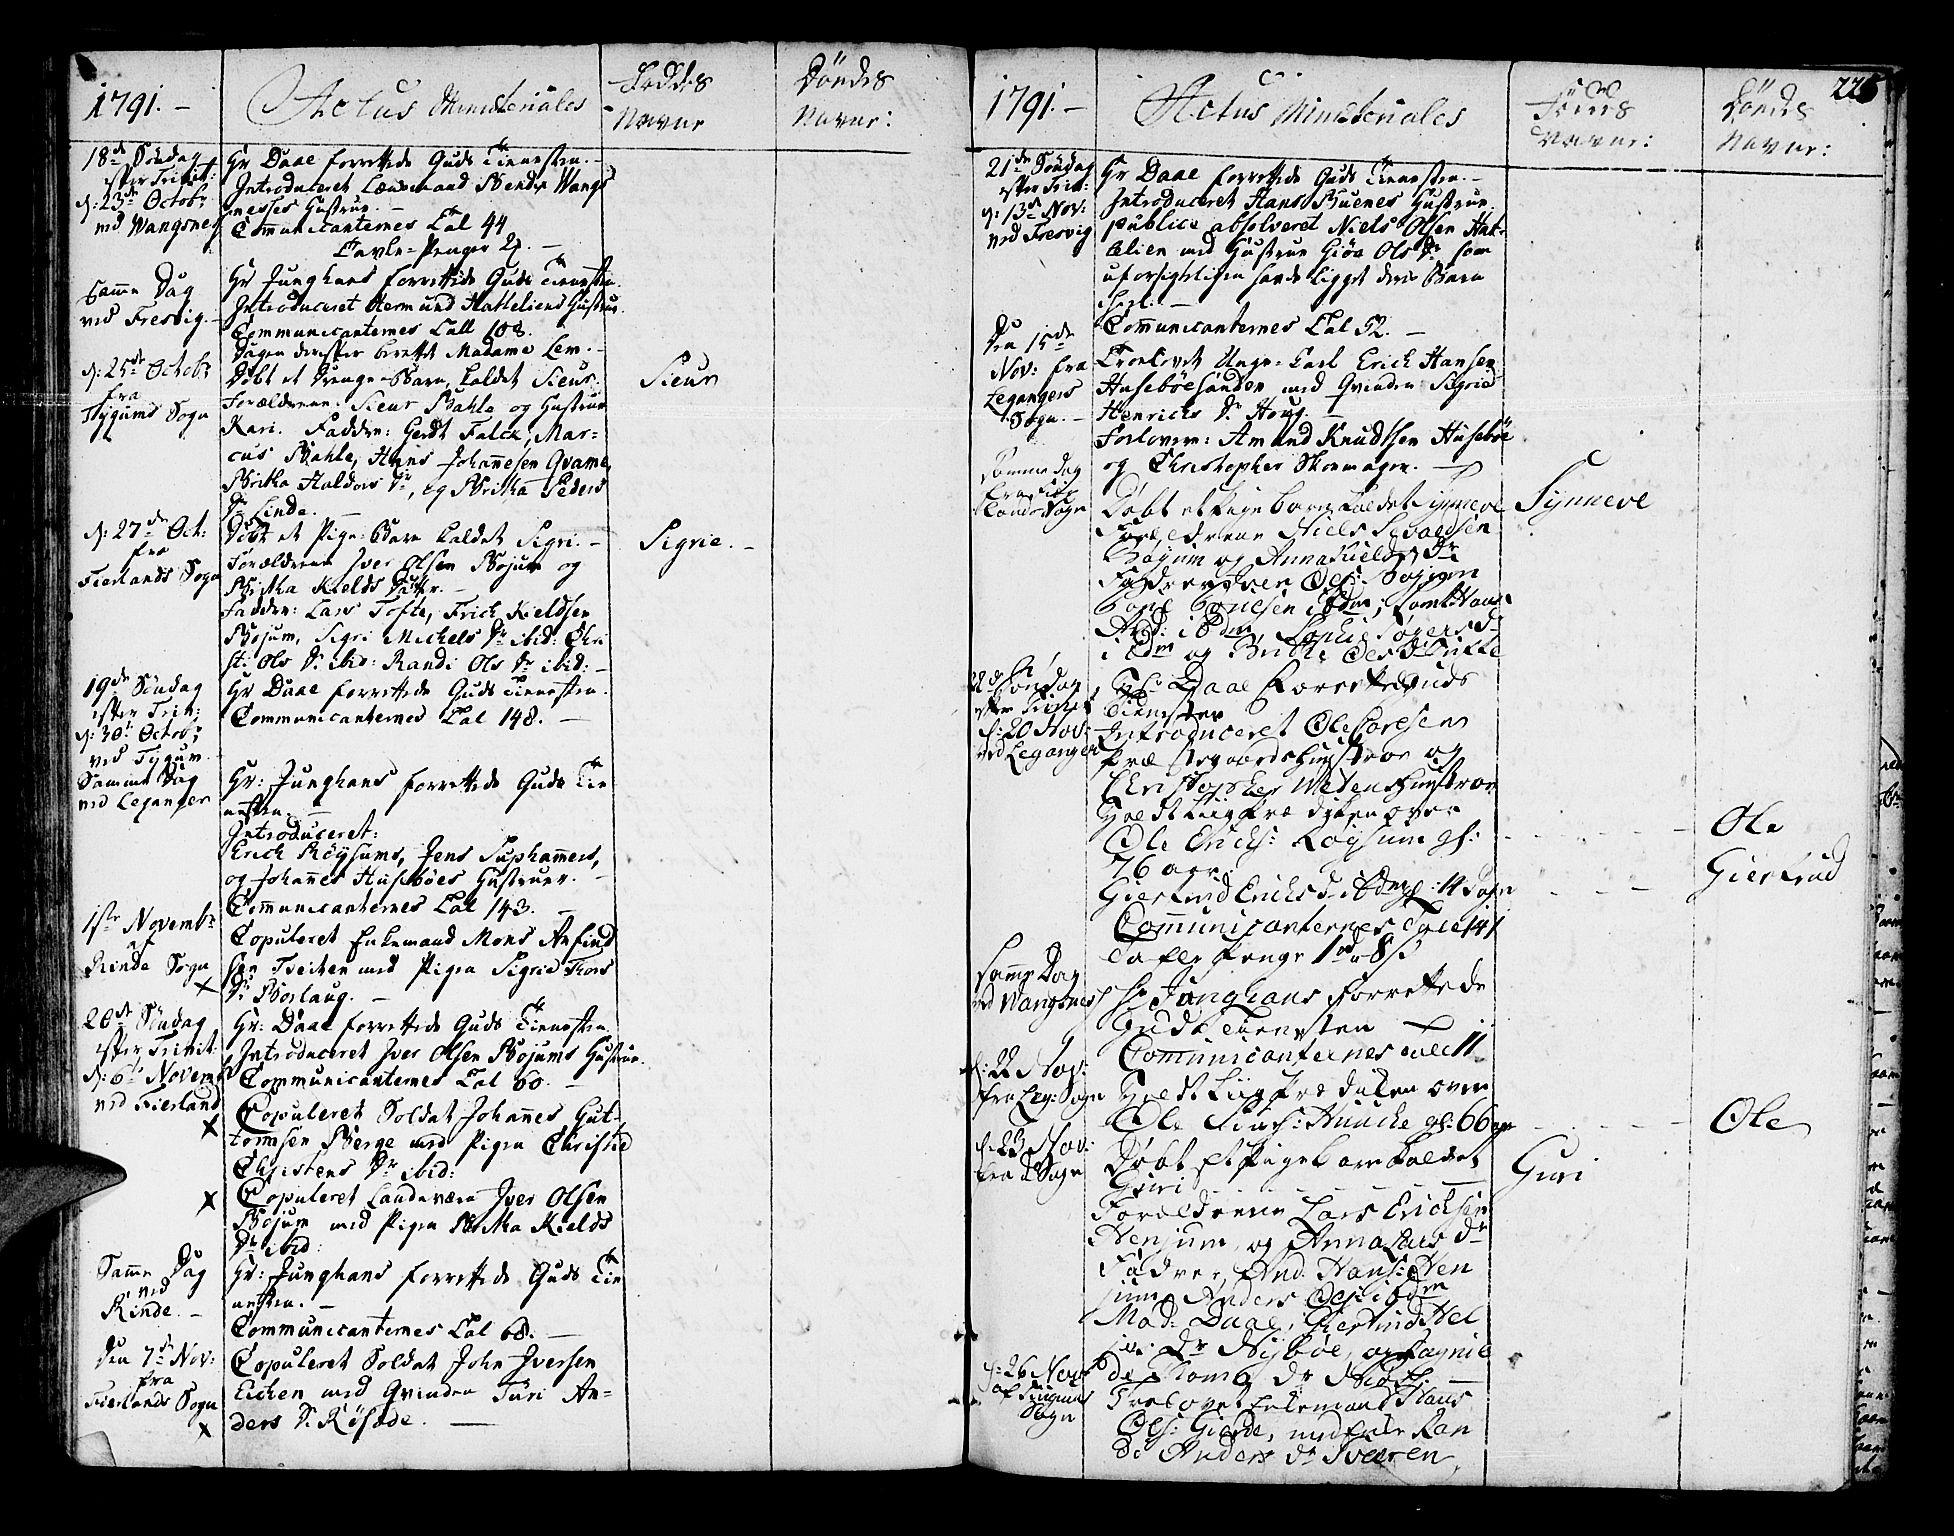 1791. –
Actus Ministeriales
Föddes
Navne
Döndes
Navne:
18de Söndag
efter Trinit:
d: 23de Octobr
ved Wangsnes
Hr Daae forrettede Guds Tienesten. –
Introduceret Lænsmand Wangs
nesses Hustrue. –
Communicanternes Tal 44
Tavle-Penger –
Samme Dag
ved Fresvig. –
Hr Junghans forrettede Guds Tienesten.
Introduceret Hermund Hatteliens Hustrue.
Communicanternes Tall 108.
Dagen derefter berettet Madame Lem. –
d: 25de Octobr
fra
Tygums Sogn
Döbt et Drenge-Barn, kaldet Siur.
Siur
Forældrene: Siur Bahle og Hustrue
Kari. Faddere: Gerdt Falck, Mar=
cus Bahle, Hans Johannesen Qvame,
Britha Haldors Dr, og Britha Peders
Dr Linde. –
d: 27de Oct:
fra
Fierlands Sogn
Döbt et Pige-Barn kaldet Sigri. –
Sigrie. –
Forældrene Iver Olsen Bojum og
Britha Kields Datter. –
Faddere: Lars Tofte, Erich Kieldsen
Bojum, Sigri Michels Dr ibid: Chri
sti Ols Dr ibid: Randi Ols Dr ibid: –
19de Söndag
efter Trin:
d: 30te Octobr
ved Tygum
Hr Daae forrettede Guds Tienesten.
Communicanternes Tal 148. –
Samme Dag
ved Leganger
Hr: Junghans forrettede Guds Tie
nesten. –
Introduceret:
Erich Röysums, Jens Suphammers,
og Johannes Huseböes Hustruer. –
Communicanternes Tal 143. –
1ste Novembr
af
Rinde Sogn
×
Copuleret Enkemand Mons Anfind
sen Feichen med Pigen Sigrid Thors
Dr Borlaug. –
20de Söndag
efter Trinit:
d: 6te Novembr
ved Fierland
×
Hr: Daae forrettede Guds Tienesten
Introduceret Iver Olsen Bojums Hustrue.
Communicanternes Tal 60. –
Copuleret Soldat Johannes Gut=
tormsen Berge med Pigen Christie
Christens Dr ibid:
×
Copuleret Landeværn Iver Olsen
Bojum med Pigen Britha Kields
Dr ibid:
Samme Dag
ved
Rinde. –
Hr: Junghans forrettede Guds Tie
nesten. –
Communicanternes Tal 68. –
Den 7de Nov:
fra
Fierlands Sogn
×
Copuleret Soldat John Iversen
Eichen med Qvinden Turi An=
ders Dr Rösede. –
1791. –
Actus Ministeriales
Navne:
Döndes
Navne:
21de Söndag
efter Trin:
d: 13de Nov:
ved Fresvig
Hr Daae forrettede Guds Tienesten. –
Introduceret Hans Huenes Hustrue.
publice absolveret Niels Olsen Hat=
telien med Hustrue Giöa Ols Dr som
uforsigtligen havde ligget deres Barn
ihiel. –
Communicanternes Tal 52. –
Den 15de
Nov: fra
Legangers
Sogn. –
Troelovet Unge-Karl Erich Hansen
Husebösanden med Qvinden Sigrid
Henrichs Dr Houg. –
Forlovere: Amund Knudtsen Husebóe
og Christopher Skomager. –
Samme dag
Sogn
Döbt et Pige barn kaldet Synneve
Synneve
Forældrene Niels
Böyum og Anna Kields Dr
Faddere Iver Ols: Böjum
22de Söndag
efter Trinit
d: 20 Nov:
ved Leganger
Hr Daae Forrettede Guds
Tienesten
Introduceret Ole Larsens
præstegaards Hustroe og
Christopher Wedens Hustroe
Holdt Liigprædiken over
Ole Erichs: Röysum gl:
76 aar.
Ole
Giertrud Erichs d: ibdm gl: 14 dage
Giertrud
Communicanternes Tal 141
Tafle penge
Samme Dag
ved Wangsnes
Hr Junghans forrettede
Guds Tienesten
Communicanternes Tall 11
d: 22 Nov:
fra Leg: Sogn
Holdt Liigprædiken over
Ole Hunche gl: 66 aar
Ole
d: 23 Nov:
fra d Sogn
Döbt et Pigebarn kaldet
Guri
Guri
Forældrene Lars Erichsen
Henjum, og Anna Lars Dr
Fadrer, And: Hans: Hen
jum, Anders Ols: ibdm
Mad: Daae, Giertrud Hel
Dr Nyböe, og Ragnil
d: 26 Nov:
af Tiugums
Sogn
Trolovet Enkemand Hans
Ols: Gierde, med Enke Ran
di Anders Dr Sværen